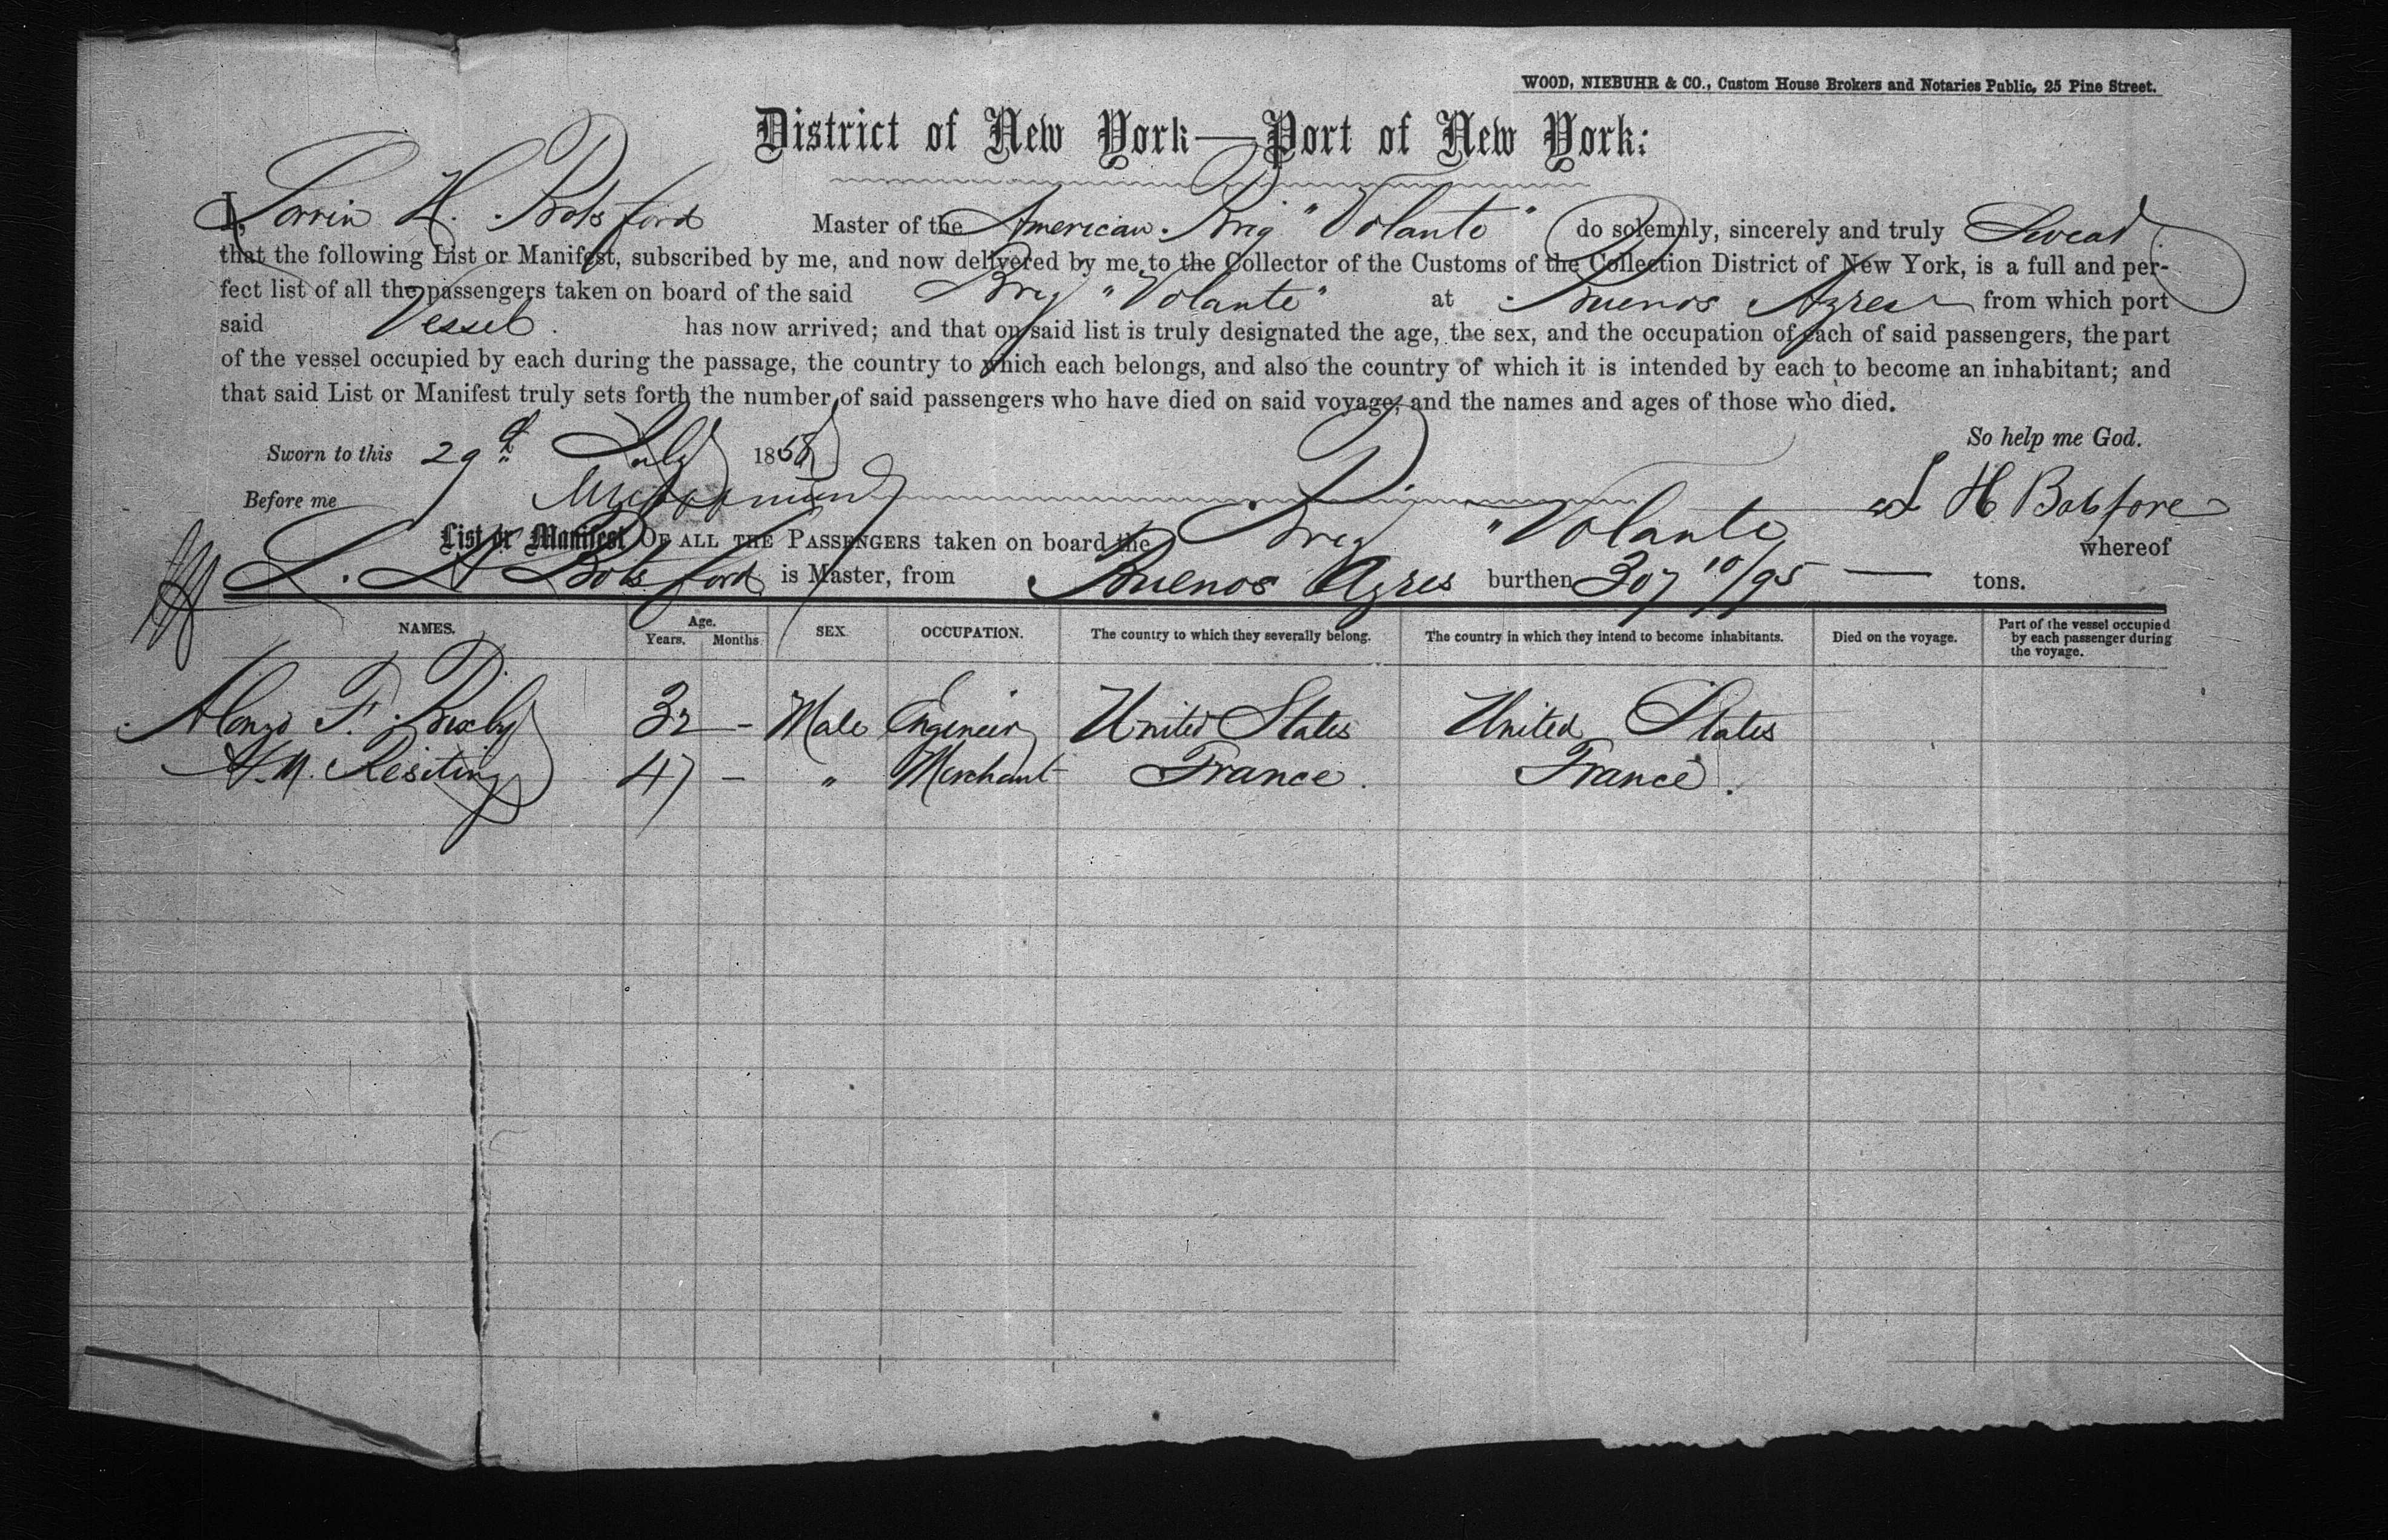 WOOD, NIEBUHR & CO., Custom House Brokers and Notaries Public, 25 Pine Street.
District of New York—Port of New York:
I, Lorrin H. Botsford Master of the American Brig "Volante" do solemnly, sincerely and truly Swear
that the following List or Manifest, subscribed by me, and now delivered by me to the Collector of the Customs of the Collection District of New York, is a full and per-
fect list of all the passengers taken on board of the said Brig "Volante" at Buenos Ayres from which port
said Vessel has now arrived; and that on said list is truly designated the age, the sex, and the occupation of each of said passengers, the part
of the vessel occupied by each during the passage, the country to which each belongs, and also the country of which it is intended by each to become an inhabitant; and
that said List or Manifest truly sets forth the number of said passengers who have died on said voyage, and the names and ages of those who died.
So help me God.
Sworn to this 29th July 1858
Before me L H Botsford
List or Manifest OF ALL THE PASSENGERS taken on board the Brig "Volante whereof
L. H Botsford is Master, from Buenos Ayres burthen 307 10/95 — tons.
NAMES. Age. Years. Months SEX OCCUPATION. The country to which they severally belong. The country in which they intend to become inhabitants. Died on the voyage. Part of the vessel occupied by each passenger during the voyage.
Alonzo F. Bixby 32 - Male Engineir United States United States
47 - " Merchant France. France.